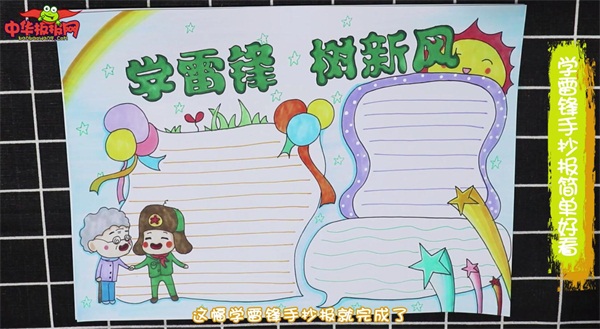 中华板报网
学雷锋 树新风
学雷锋手抄报简单好看
这幅学雷锋手抄报就完成了